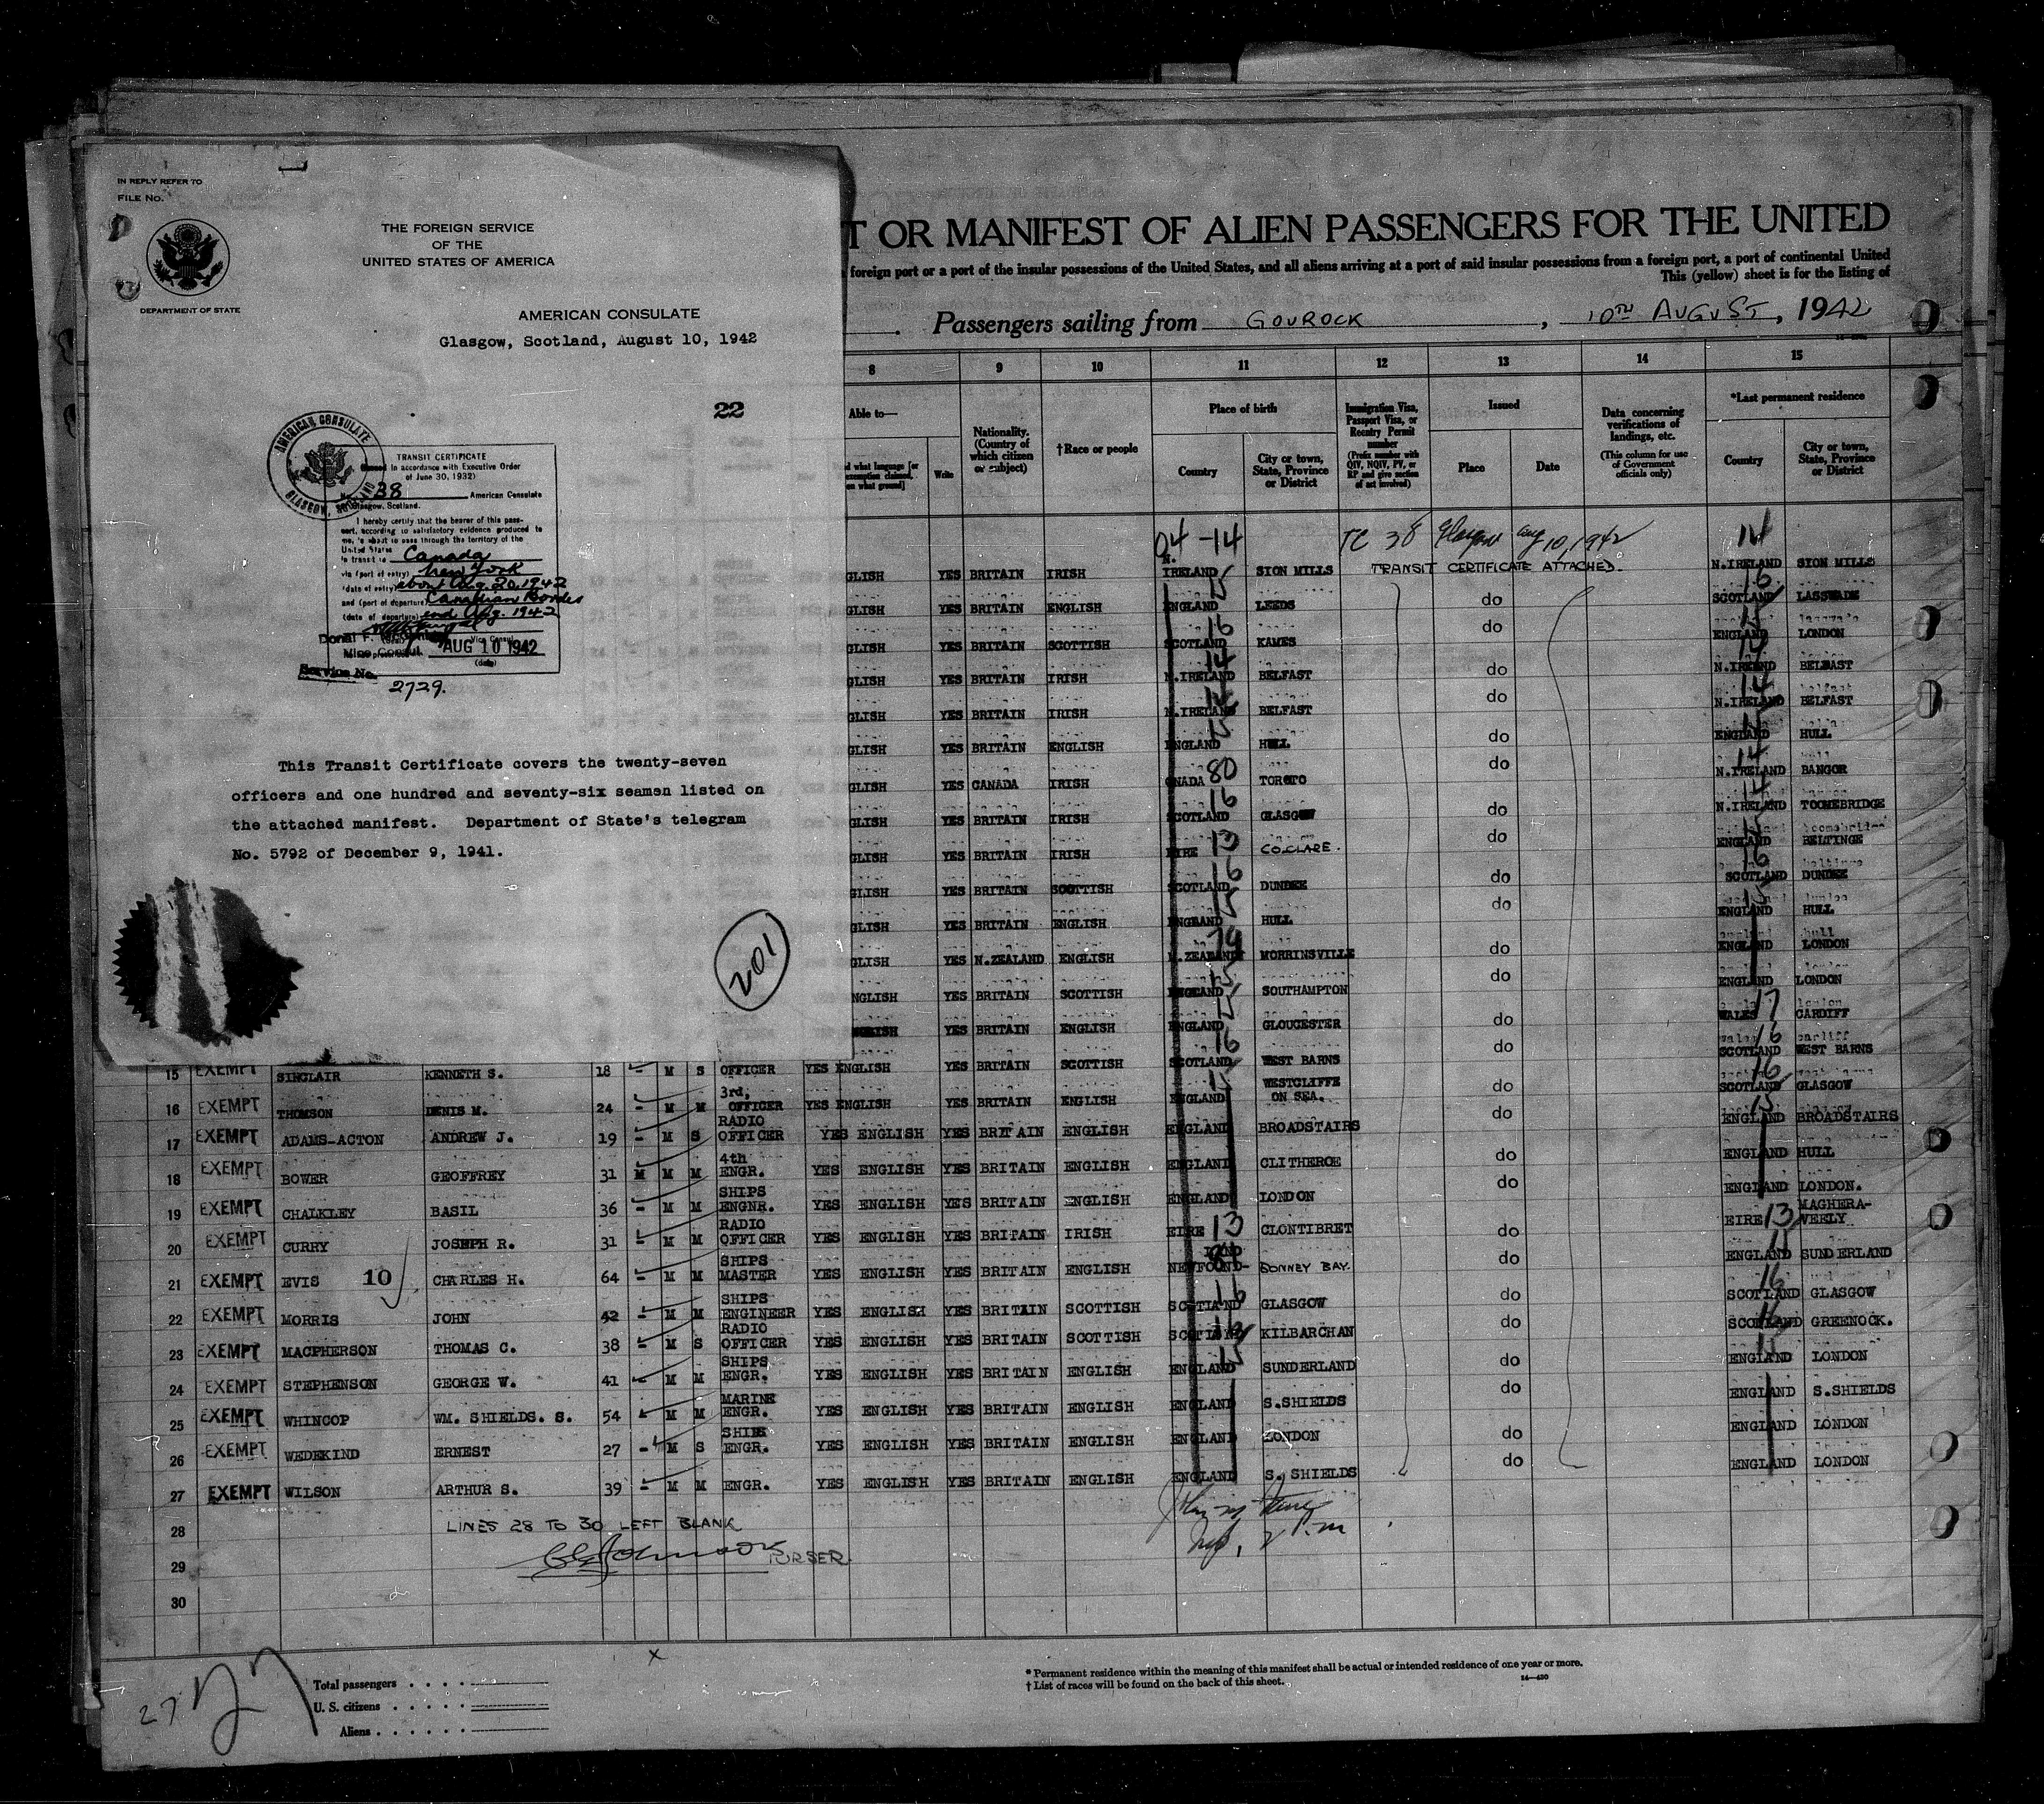 IN REPLY REFER TO
FILE NO.
DEPARTMENT OF STATE
THE FOREIGN SERVICE
OF THE
UNITED STATES OF AMERICA
AMERICAN CONSULATE
Glasgow, Scotland, August 10, 1942
22
AMERICAN CONSULATE
GLASGOW, SCOTLAND
TRANSIT CERTIFICATE
in accordance with Executive Order
of June 30, 1932)
No. 38 American Consulate
Glasgow, Scotland.
I hereby certify that the bearer of this pass-
port, according to satisfactory evidence produced to
me, is about to pass through the territory of the
United States
in transit to Canada
via (port of entry) New York
(date of entry) about Aug. 20, 1942
and (port of departure) Canadian Border
(date of departure) end Aug. 1942
Donal F.
Vice Consul
AUG 10 1942
(date)
Service No.
2729.
This Transit Certificate covers the twenty-seven
officers and one hundred and seventy-six seamen listed on
the attached manifest. Department of State's telegram
No. 5792 of December 9, 1941.
201
T OR MANIFEST OF ALIEN PASSENGERS FOR THE UNITED
foreign port or a port of the insular possessions of the United States, and all aliens arriving at a port of said insular possessions from a foreign port, a port of continental United
This (yellow) sheet is for the listing of
Passengers sailing from GOUROCK, 10TH AUGUST, 1942
8 9 10 11 12 13 14 15
Able to—
what language [or
exemption claimed,
on what ground]
Write
Nationality. (Country of which citizen or subject)
†Race or people
Place of birth
Country
City or town, State, Province or District
Immigration Visa, Passport Visa, or Reentry Permit number
(Prefix number with QIV, NQIV, PV, or RP and give section of act involved)
Issued
Place
Date
Data concerning verifications of landings, etc.
(This column for use of Government officials only)
*Last permanent residence
Country
City or town, State, Province or District
04-14 TC 38 Glasgow Aug 10, 1942 14
GLISH YES BRITAIN IRISH N. IRELAND SION MILLS TRANSIT CERTIFICATE ATTACHED. N.IRELAND SION MILLS
GLISH YES BRITAIN ENGLISH ENGLAND 15 LEEDS do SCOTLAND 16 LASSWADE
GLISH YES BRITAIN SCOTTISH SCOTLAND 16 KAMES do ENGLAND 15 LONDON
GLISH YES BRITAIN IRISH N.IRELAND 14 BELFAST do N.IRELAND 14 BELFAST
GLISH YES BRITAIN IRISH N.IRELAND 14 BELFAST do N.IRELAND 14 BELFAST
GLISH YES BRITAIN ENGLISH ENGLAND 15 HULL do ENGLAND 15 HULL
GLISH YES CANADA IRISH CANADA 80 TOROTO do N.IRELAND 14 BANGOR
GLISH YES BRITAIN IRISH SCOTLAND 16 GLASGOW do N.IRELAND 14 TOOMEBRIDGE
GLISH YES BRITAIN IRISH EIRE 13 CO.CLARE. do ENGLAND 15 BELTINGE
GLISH YES BRITAIN SCOTTISH SCOTLAND 16 DUNDEE do SCOTLAND 16 DUNDEE
GLISH YES BRITAIN ENGLISH ENGLAND 15 HULL do ENGLAND 15 HULL
GLISH YES N.ZEALAND ENGLISH N.ZEALAND MORRINSVILLE do ENGLAND LONDON
NGLISH YES BRITAIN SCOTTISH ENGLAND 15 SOUTHAMPTON do ENGLAND LONDON
YES BRITAIN ENGLISH ENGLAND 15 GLOUCESTER do WALES 17 CARDIFF
15 EXEMPT SINCLAIR KENNETH S. 18 M S OFFICER YES ENGLISH YES BRITAIN SCOTTISH SCOTLAND 16 WEST BARNS do SCOTLAND 16 WEST BARNS
16 EXEMPT THOMSON DENIS M. 24 M M 3rd, OFFICER YES ENGLISH YES BRITAIN ENGLISH ENGLAND 15 WESTCLIFFE ON SEA. do SCOTLAND 16 GLASGOW
17 EXEMPT ADAMS-ACTON ANDREW J. 19 M S RADIO OFFICER YES ENGLISH YES BRITAIN ENGLISH ENGLAND BROADSTAIRS do ENGLAND 15 BROADSTAIRS
18 EXEMPT BOWER GEOFFREY 31 M M M 4th ENGR. YES ENGLISH YES BRITAIN ENGLISH ENGLAND CLITHEROE do ENGLAND HULL
19 EXEMPT CHALKLEY BASIL 36 M M SHIPS ENGNR. YES ENGLISH YES BRITAIN ENGLISH ENGLAND LONDON do ENGLAND LONDON.
20 EXEMPT CURRY JOSEPH R. 31 M M RADIO OFFICER YES ENGLISH YES BRITAIN IRISH EIRE 13 CLONTIBRET do EIRE 13 MAGHERA-VEELY
21 EXEMPT EVIS 10 CHARLES H. 64 M M SHIPS MASTER YES ENGLISH YES BRITAIN ENGLISH NEWFOUND-LAND BONNEY BAY. do ENGLAND SUNDERLAND
22 EXEMPT MORRIS JOHN 42 M M SHIPS ENGINEER YES ENGLISH YES BRITAIN SCOTTISH SCOTLAND 16 GLASGOW do SCOTLAND 16 GLASGOW
23 EXEMPT MACPHERSON THOMAS C. 38 M S RADIO OFFICER YES ENGLISH YES BRITAIN SCOTTISH SCOTLAND 16 KILBARCHAN do SCOTLAND 16 GREENOCK.
24 EXEMPT STEPHENSON GEORGE W. 41 M M SHIPS ENGR. YES ENGLISH YES BRITAIN ENGLISH ENGLAND 15 SUNDERLAND do ENGLAND 15 LONDON
25 EXEMPT WHINCOP WM. SHIELDS. S. 54 M M MARINE ENGR. YES ENGLISH YES BRITAIN ENGLISH ENGLAND S.SHIELDS do ENGLAND S.SHIELDS
26 EXEMPT WEDEKIND ERNEST 27 M S SHIPS ENGR. YES ENGLISH YES BRITAIN ENGLISH ENGLAND LONDON do ENGLAND LONDON
27 EXEMPT WILSON ARTHUR S. 39 M M ENGR. YES ENGLISH YES BRITAIN ENGLISH ENGLAND S. SHIELDS do ENGLAND LONDON
28 LINES 28 TO 30 LEFT BLANK
29 PURSER
30
27 27
Total passengers
U. S. citizens
Aliens
* Permanent residence within the meaning of this manifest shall be actual or intended residence of one year or more.
† List of races will be found on the back of this sheet.